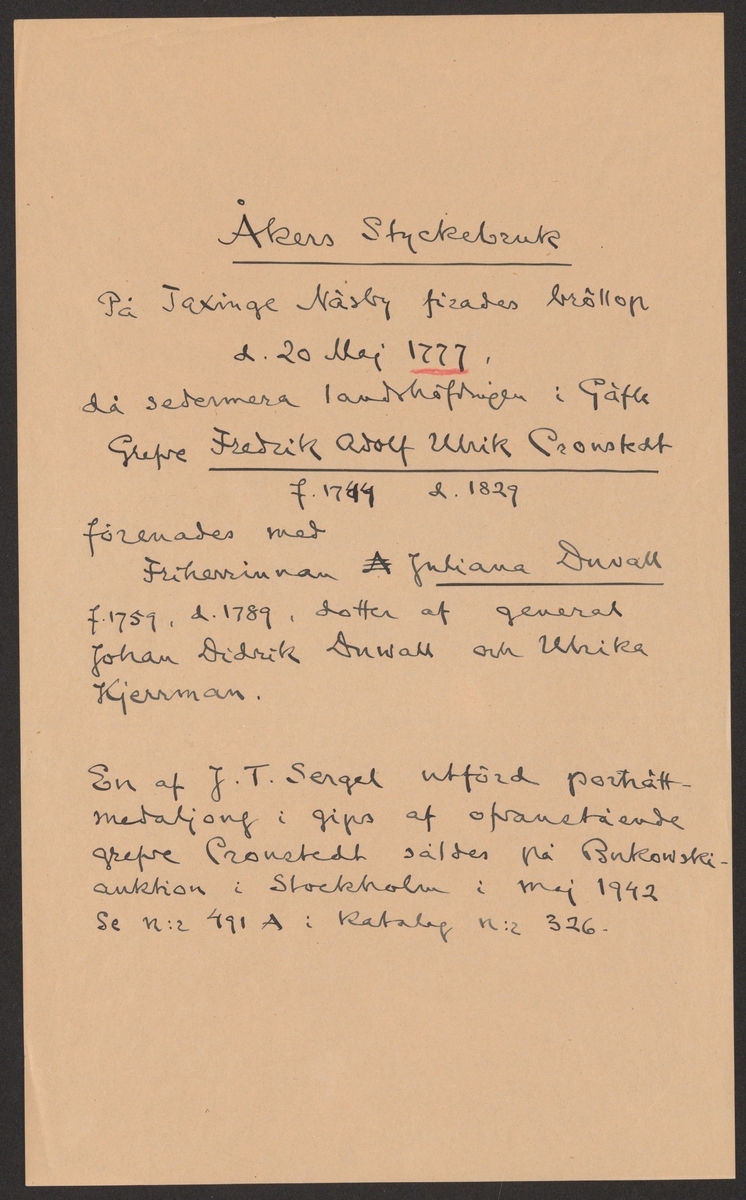 Åkers Styckebruk
På Taxinge Näsby firades bröllop
d. 20 Maj 1777,
då sedermera landshöfdingen i Gäfle
Grefve Fredrik Adolf Ulrik Cronstedt
f. 1744 d. 1829
förenades med
Friherrinnan A Juliana Duvall
f. 1759, d. 1789, dotter af general
Johan Didrik Duwall och Ulrika
Kjerrman.
En af J. T. Sergel utförd porträtt-
medaljong i gips af ofvanstående
grefve Cronstedt såldes på Bukowski-
auktion i Stockholm i maj 1942
Se n:r 491 A i katalog n:r 326.